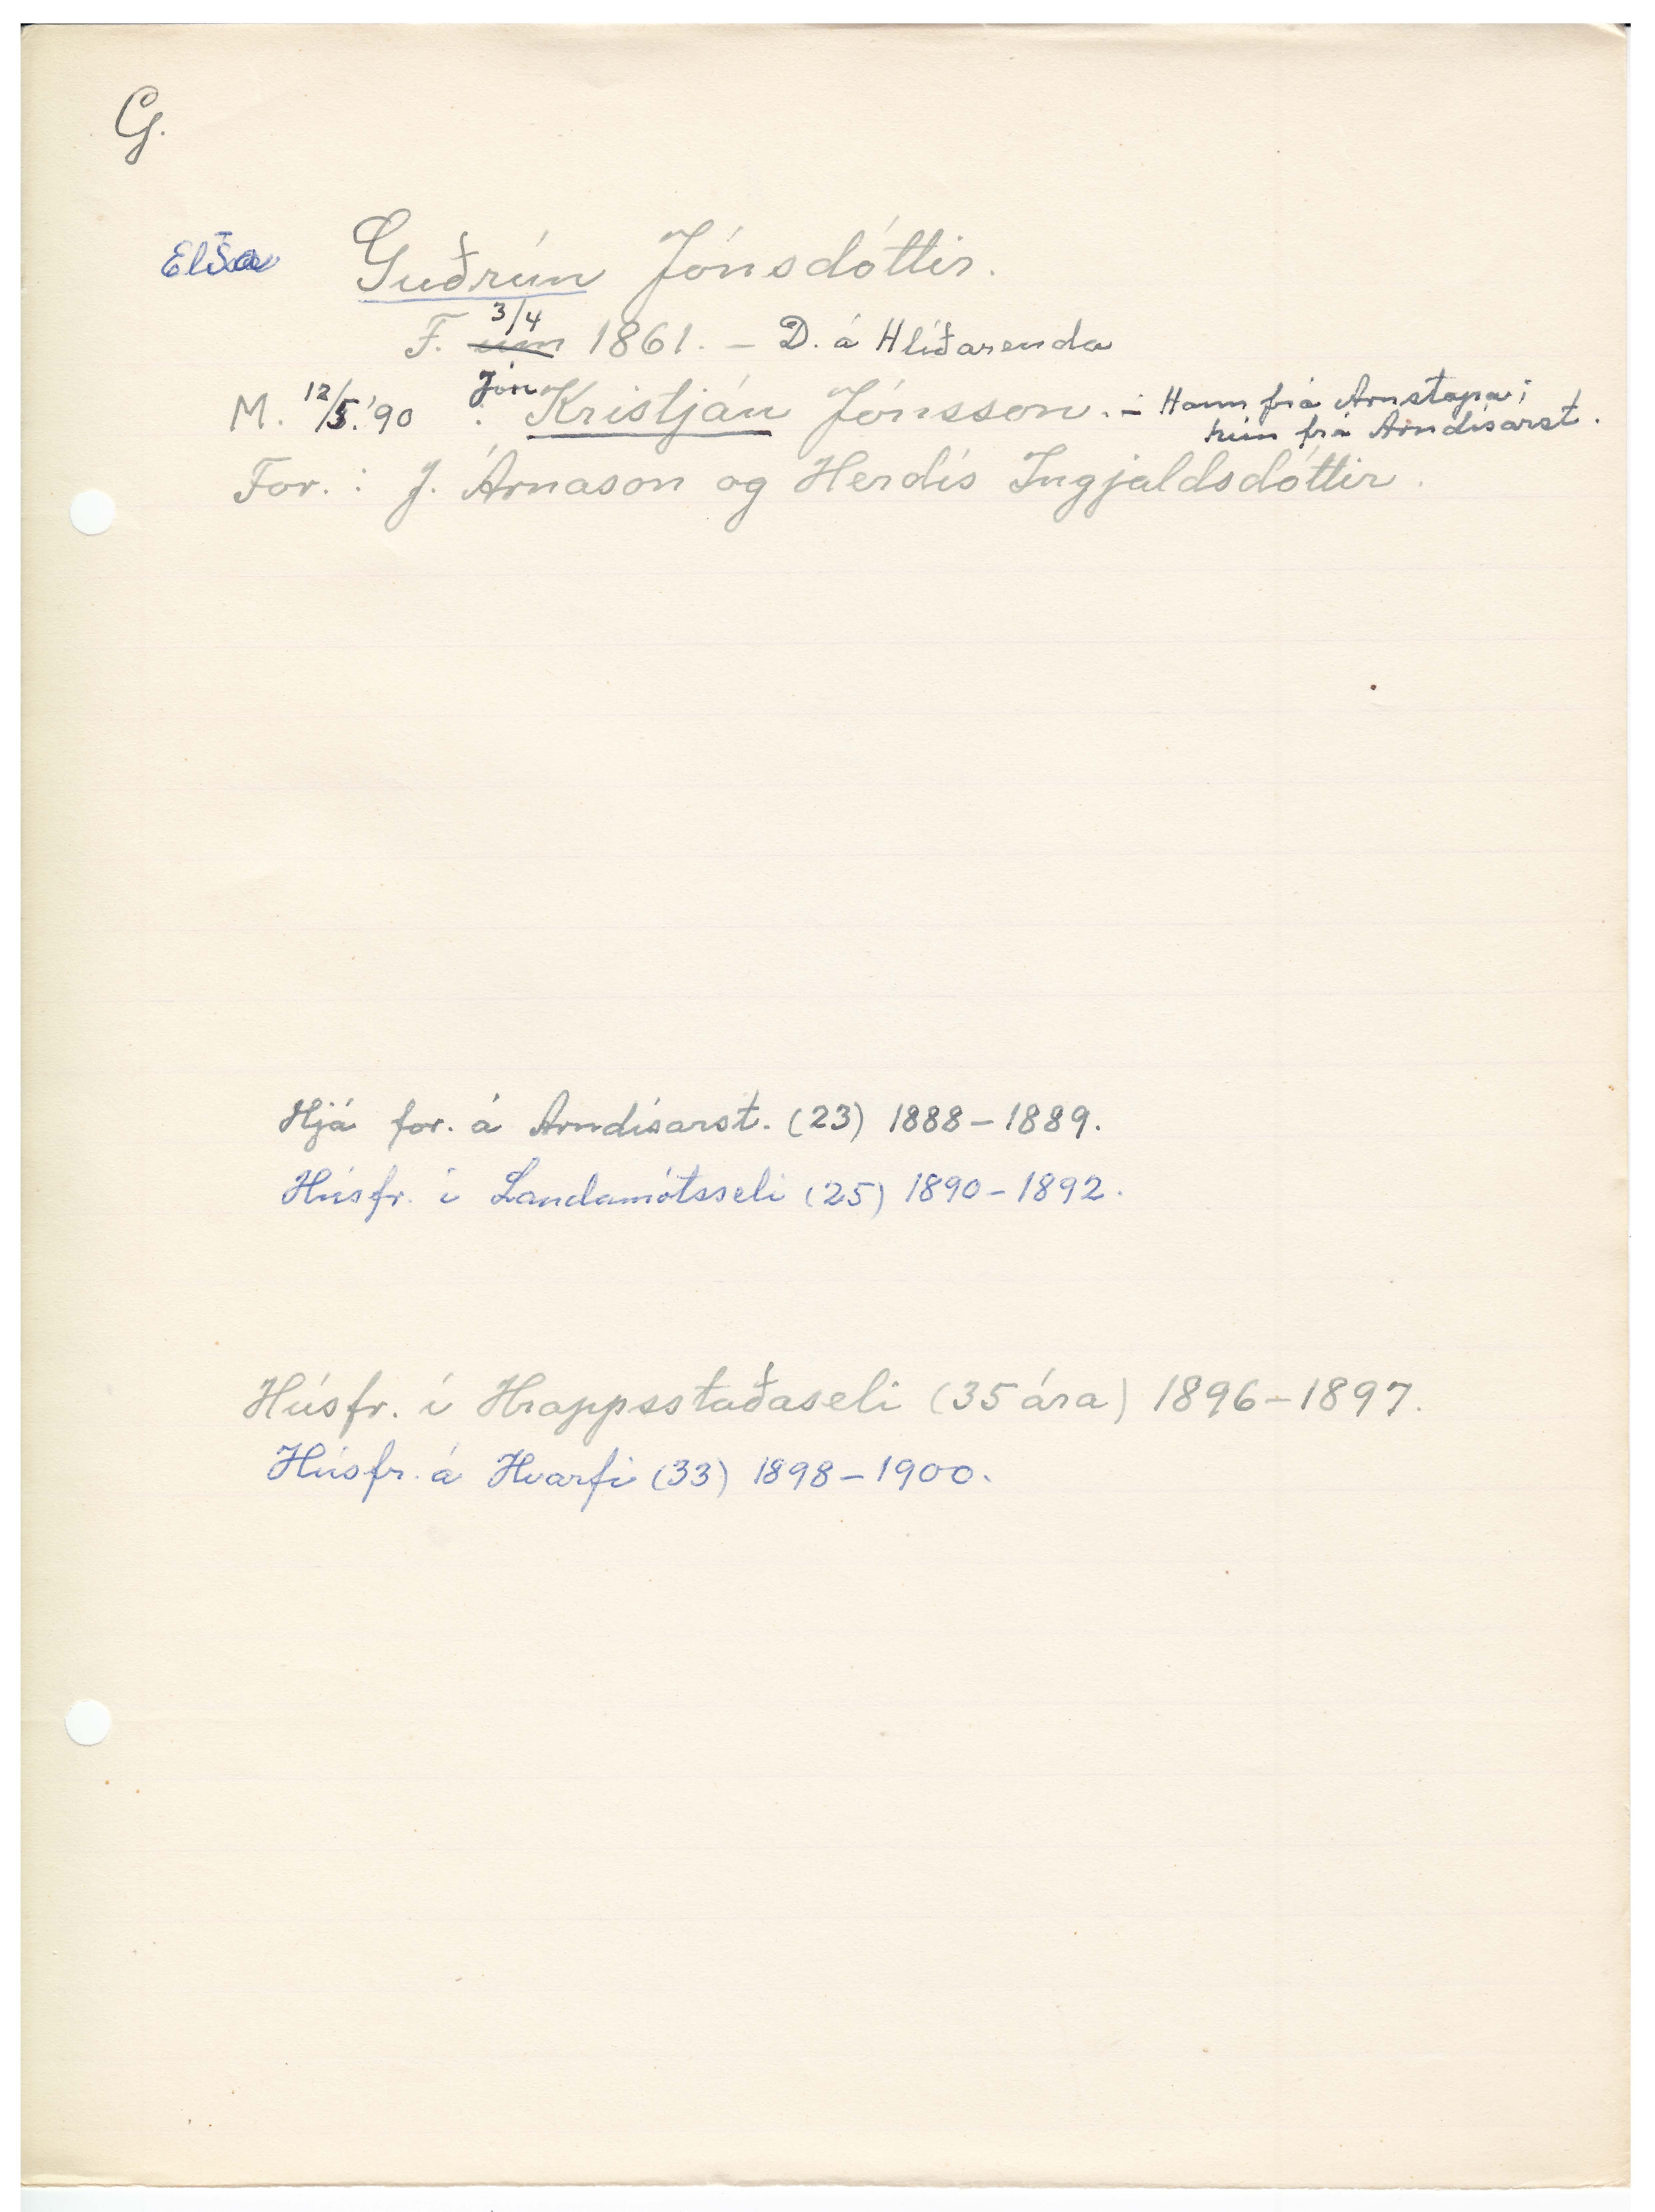 G.
Elísa Guðrún Jónsdóttir.
3/4
F. um 1861. – D. á Hlíðarenda
Jón
M. 12/5.'90 . Kristján Jónsson. – Hann frá Arnstapa;
hún frá Arndísarst.
For. : J. Árnason og Herdís Ingjaldsdóttir.
Hjá for. á Arndísarst. (23) 1888–1889.
Húsfr. í Landamótsseli (25) 1890–1892.
Húsfr. í Hrappsstaðaseli (35 ára) 1896–1897.
Húsfr. á Hvarfi (33) 1898–1900.